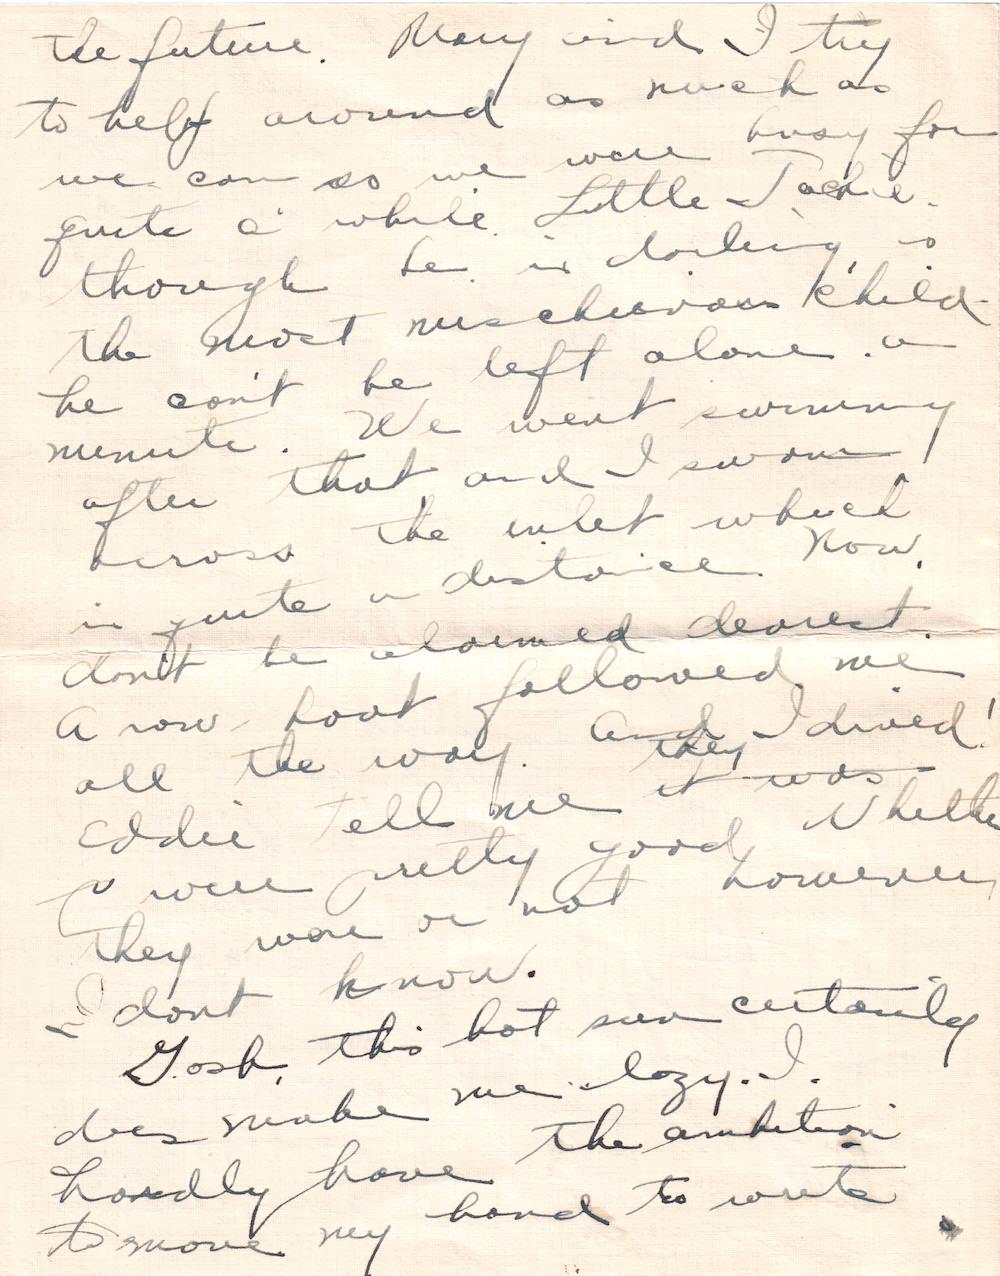 the future. Mary and I try
to help around as much as
we can so we were busy for
quite a while. Little Jackie.
though he is darling, is
the most mischievous child-
he can't be left alone a
minute. We went swimming
after that and I swam
across the inlet which
is quite a distance. Now,
don't be alarmed dearest.
A row boat followed me
all the way. And I dived!
Eddie tell me they it was
were pretty good. Whether
they were or not however,
I dont know.
Gosh, this hot sun certainly
does make me lazy. I.
hardly have the ambition
to move my hand to write